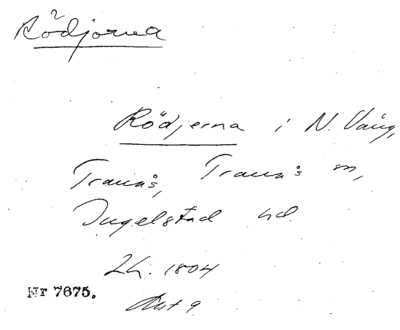 Rödjorna
Rödjerna i N. Vång,
Tranås, Tranås sn,
Ingelstad hd
Lh. 1804
Akt 9
Nr 7675.